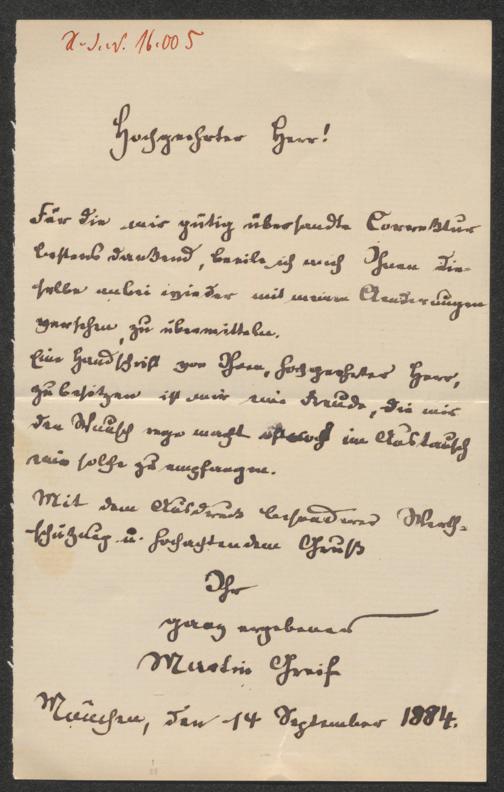 16.005
Hochgeehrter Herr!
Für die mir gütig übersandte Correktur
bestens dankend, beeile ich mich Ihnen die-
selbe anbei wieder mit meinen Aenderungen
versehen, zu übermitteln.
Eine Handschrift von Ihnen, hochgeehrter Herr,
zu besitzen ist mir eine Freude, die mir
den Wunsch rege macht im Austausch
eine solche zu empfangen.
Mit dem Ausdruck besonderer Werth-
schätzung u. hochachtendem Gruß
Ihr
ganz ergebener
Martin Greif
München, den 14 September 1884.